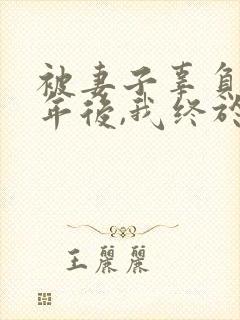 被妻子辜負
年後,我終於
王麗麗